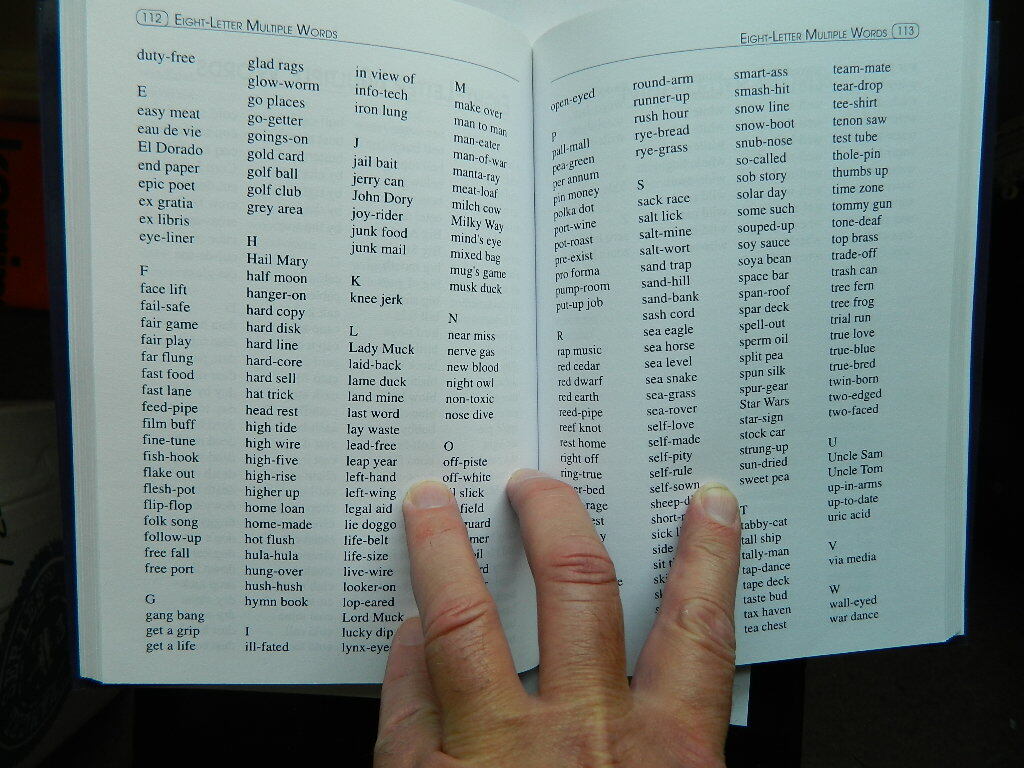 112 EIGHT-LETTER MULTIPLE WORDS
duty-free
E
easy meat
eau de vie
El Dorado
end paper
epic poet
ex gratia
ex libris
eye-liner
F
face lift
fail-safe
fair game
fair play
far flung
fast food
fast lane
feed-pipe
film buff
fine-tune
fish-hook
flake out
flesh-pot
flip-flop
folk song
follow-up
free fall
free port
G
gang bang
get a grip
get a life
glad rags
glow-worm
go places
go-getter
goings-on
gold card
golf ball
golf club
grey area
H
Hail Mary
half moon
hanger-on
hard copy
hard disk
hard line
hard-core
hard sell
hat trick
head rest
high tide
high wire
high-five
high-rise
higher up
home loan
home-made
hot flush
hula-hula
hung-over
hush-hush
hymn book
I
ill-fated
in view of
info-tech
iron lung
J
jail bait
jerry can
John Dory
joy-rider
junk food
junk mail
K
knee jerk
L
Lady Muck
laid-back
lame duck
land mine
last word
lay waste
lead-free
leap year
left-hand
left-wing
legal aid
lie doggo
life-belt
life-size
live-wire
looker-on
lop-eared
Lord Muck
lucky dip
M
make over
man to man
man-eater
man-of-war
manta-ray
meat-loaf
milch cow
Milky Way
mind's eye
mixed bag
mug's game
musk duck
N
near miss
nerve gas
new blood
night owl
non-toxic
nose dive
O
off-piste
off-white
slick
field
EIGHT-LETTER MULTIPLE WORDS 113
open-eyed
P
pall-mall
pea-green
per annum
pin money
polka dot
port-wine
pot-roast
pre-exist
pro forma
pump-room
put-up job
R
rap music
red cedar
red dwarf
red earth
reed-pipe
reef knot
rest home
right off
ring-true
round-arm
runner-up
rush hour
rye-bread
rye-grass
S
sack race
salt lick
salt-mine
salt-wort
sand trap
sand-hill
sand-bank
sash cord
sea eagle
sea horse
sea level
sea snake
sea-grass
sea-rover
self-love
self-made
self-pity
self-rule
self-sown
smart-ass
smash-hit
snow line
snow-boot
snub-nose
so-called
sob story
solar day
some such
souped-up
soy sauce
soya bean
space bar
span-roof
spar deck
spell-out
sperm oil
split pea
spun silk
spur-gear
Star Wars
star-sign
stock car
strung-up
sun-dried
sweet pea
T
tabby-cat
tall ship
tally-man
tap-dance
tape deck
taste bud
tax haven
tea chest
team-mate
tear-drop
tee-shirt
tenon saw
test tube
thole-pin
thumbs up
time zone
tommy gun
tone-deaf
top brass
trade-off
trash can
tree fern
tree frog
trial run
true love
true-blue
true-bred
twin-born
two-edged
two-faced
U
Uncle Sam
Uncle Tom
up-in-arms
up-to-date
uric acid
V
via media
W
wall-eyed
war dance